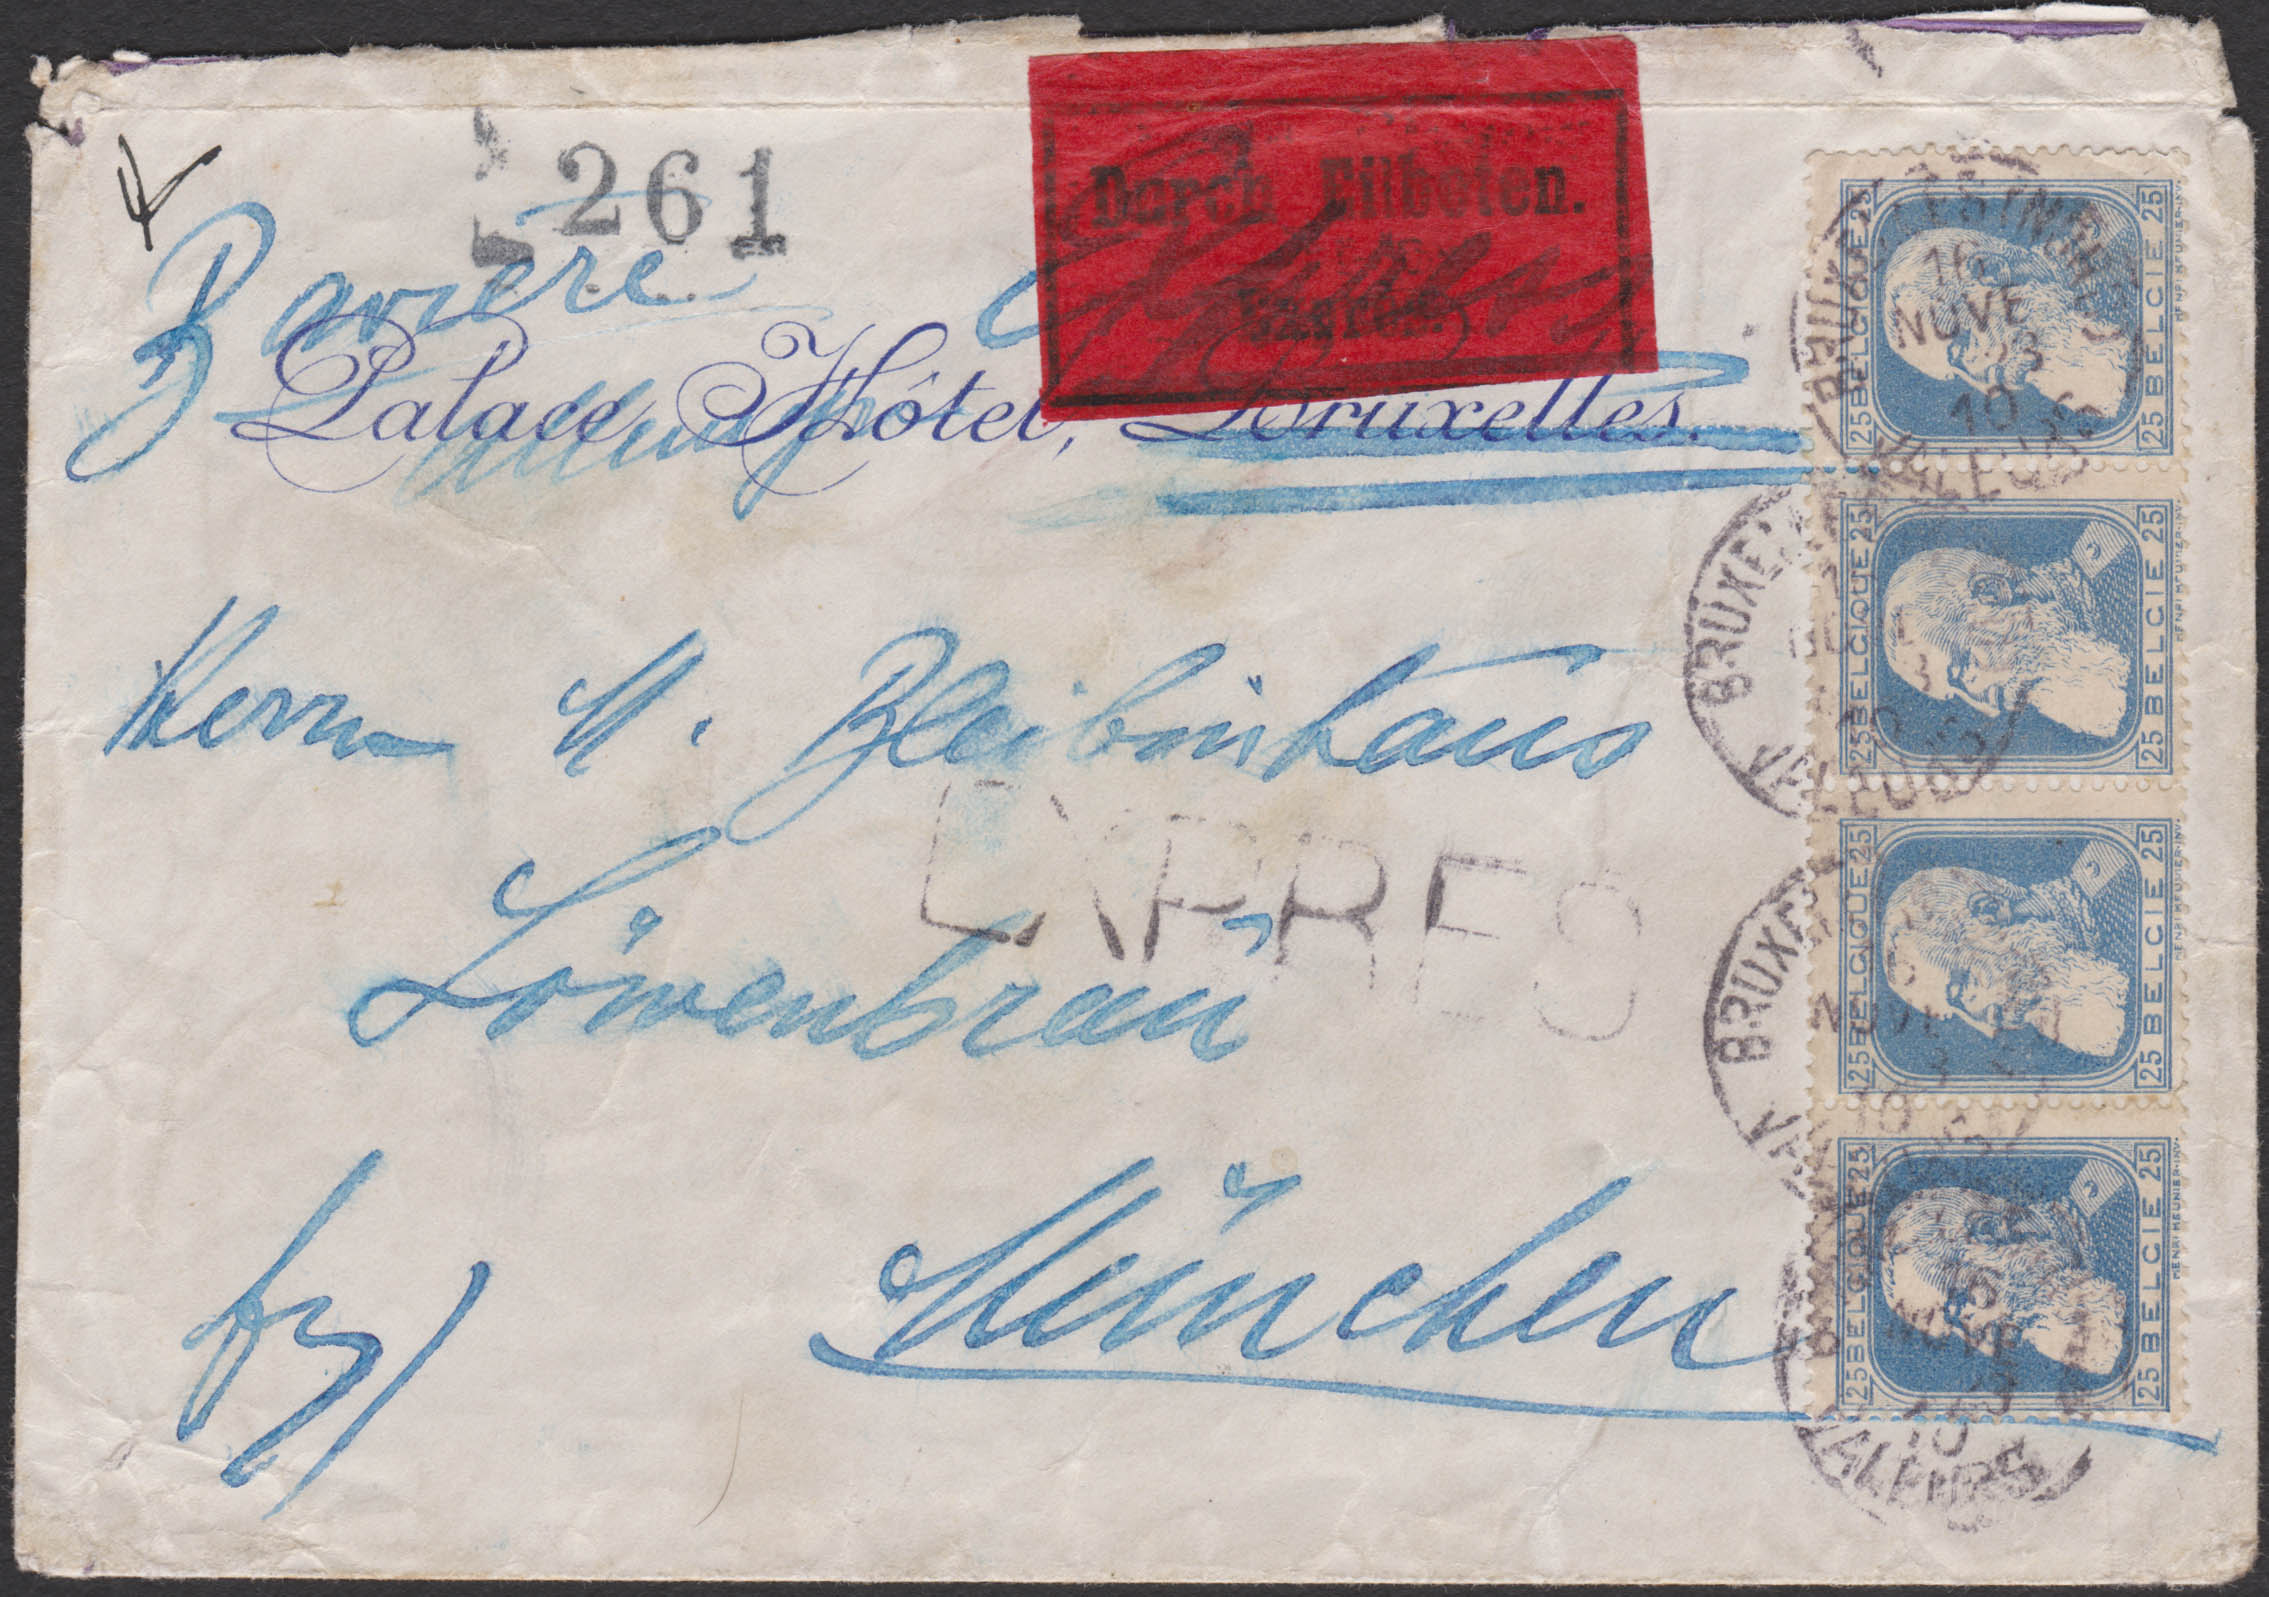 261
Bavière
Durch Eilboten.
Exprès.
Palace Hôtel, Bruxelles.
Herrn M. Bleibinhaus
EXPRES
Löwenbräu
München
25 BELGIQUE 25
25 BELGIE 25
HENRI MEUNIER·INV.
25 BELGIQUE 25
25 BELGIE 25
HENRI MEUNIER·INV.
25 BELGIQUE 25
25 BELGIE 25
HENRI MEUNIER·INV.
25 BELGIQUE 25
25 BELGIE 25
HENRI MEUNIER·INV.
16
NOVE
10
VALEURS
BRUXE
VALEURS
BRUXE
10
NOVE
10
VALEURS